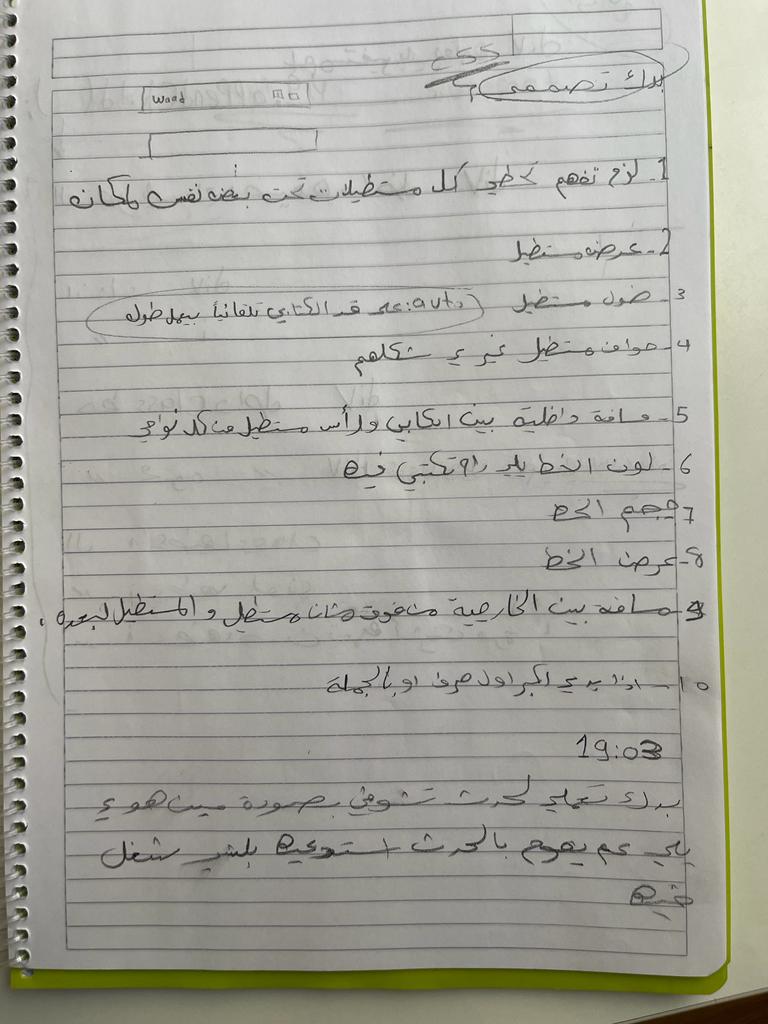 css
بدك تصممي
waad
1- لازم تفهم تحطي كل مستطيلات تحت بعض نفس المكان
2- عرض مستطيل
3- طول مستطيل (auto: على قد الكتابي تلقائياً بيعمل طوله)
4- حواف مستطيل غيري شكلهم
5- مسافة داخلية بين الكتابي ورأس مستطيل من كل نواحي
6- لون الخط يلي راح تكتبي فيه
7- حجم الخط
8- عرض الخط
9- مسافة بين الخارجية من فوق مستطيل والمستطيل لبعده
10- اذا بدي اكبر اول حرف او بالجملة
19:03
بدك تعملي لحدث تشوفي بصورة مين هوي
يلي عم يقوم بالحدث استدعيه بلشي شغل
فيه